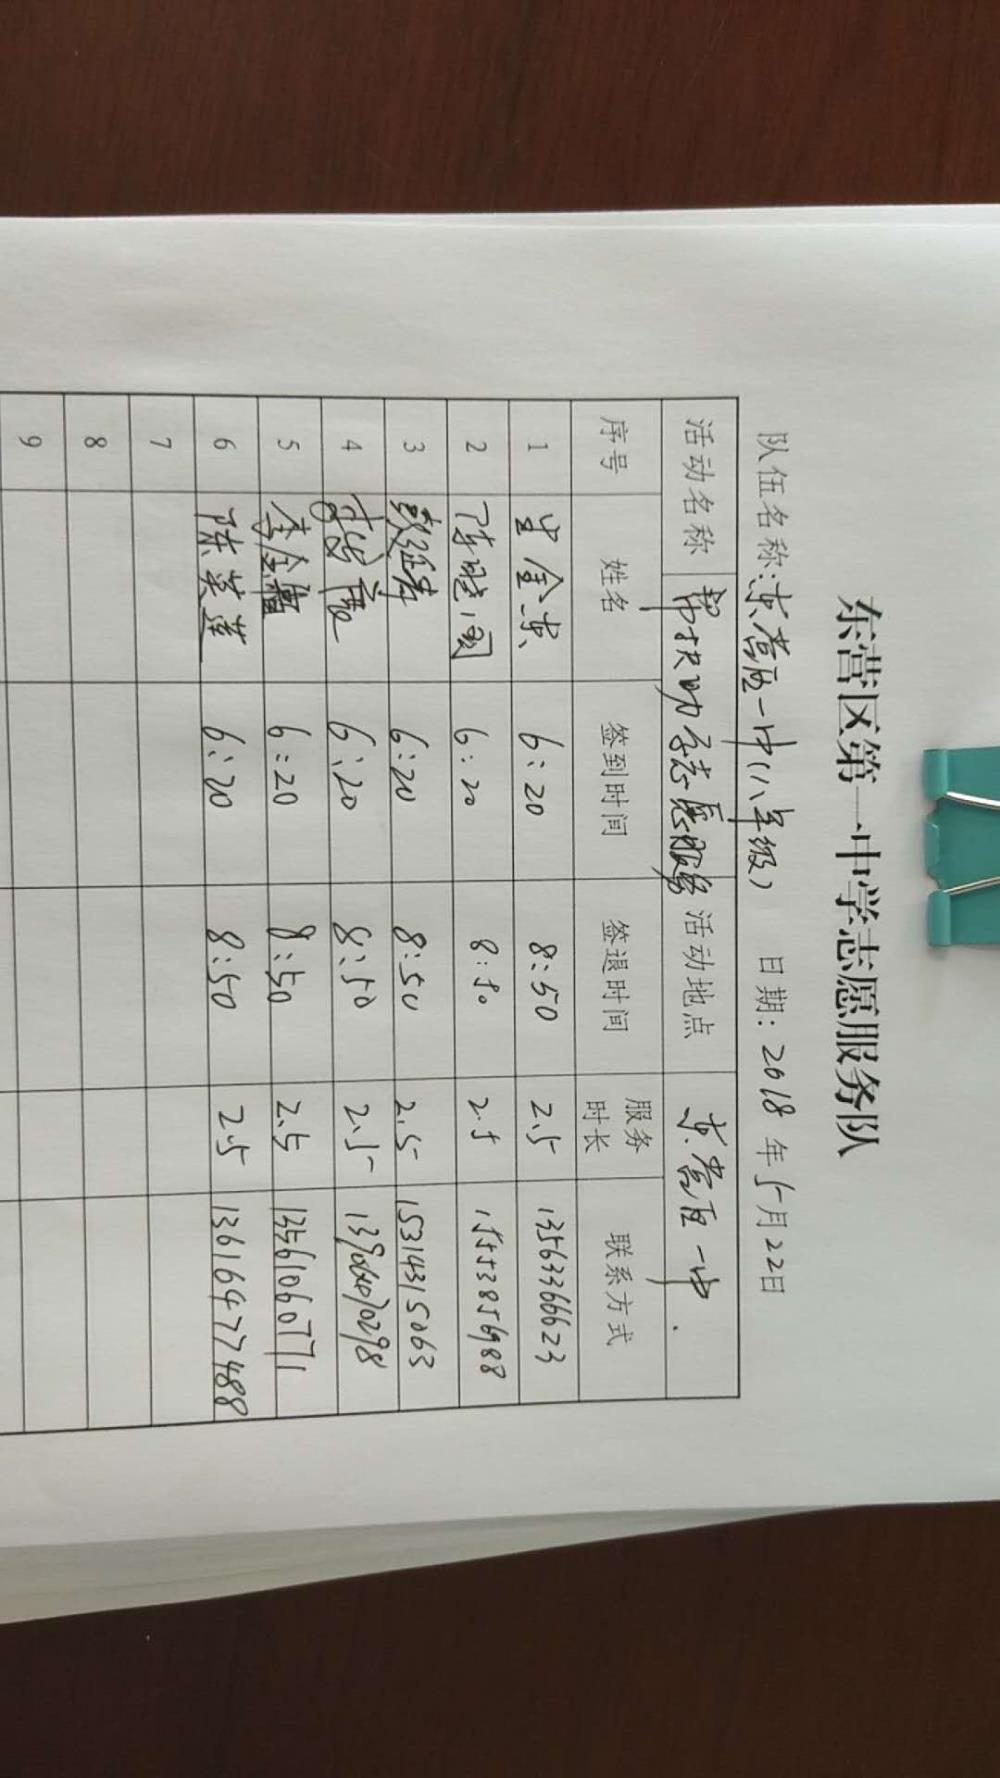 东营区第一中学志愿服务队
队伍名称:东营区一中(八年级) 日期: 2018 年 5 月 22 日
活动名称 帮扶助学志愿服务 活动地点 东营区一中.
序号 姓名 签到时间 签退时间 服务时长 联系方式
1 6:20 8:50 2.5 13563366623
2 陈晓国 6:20 8:50 2.5 15553856988
3 6:20 8:50 2.5 15314315063
4 6:20 8:50 2.5
5 李金 6:20 8:50 2.5 13561060771
6 陈英莲 6:20 8:50 2.5 13616477488
7
8
9